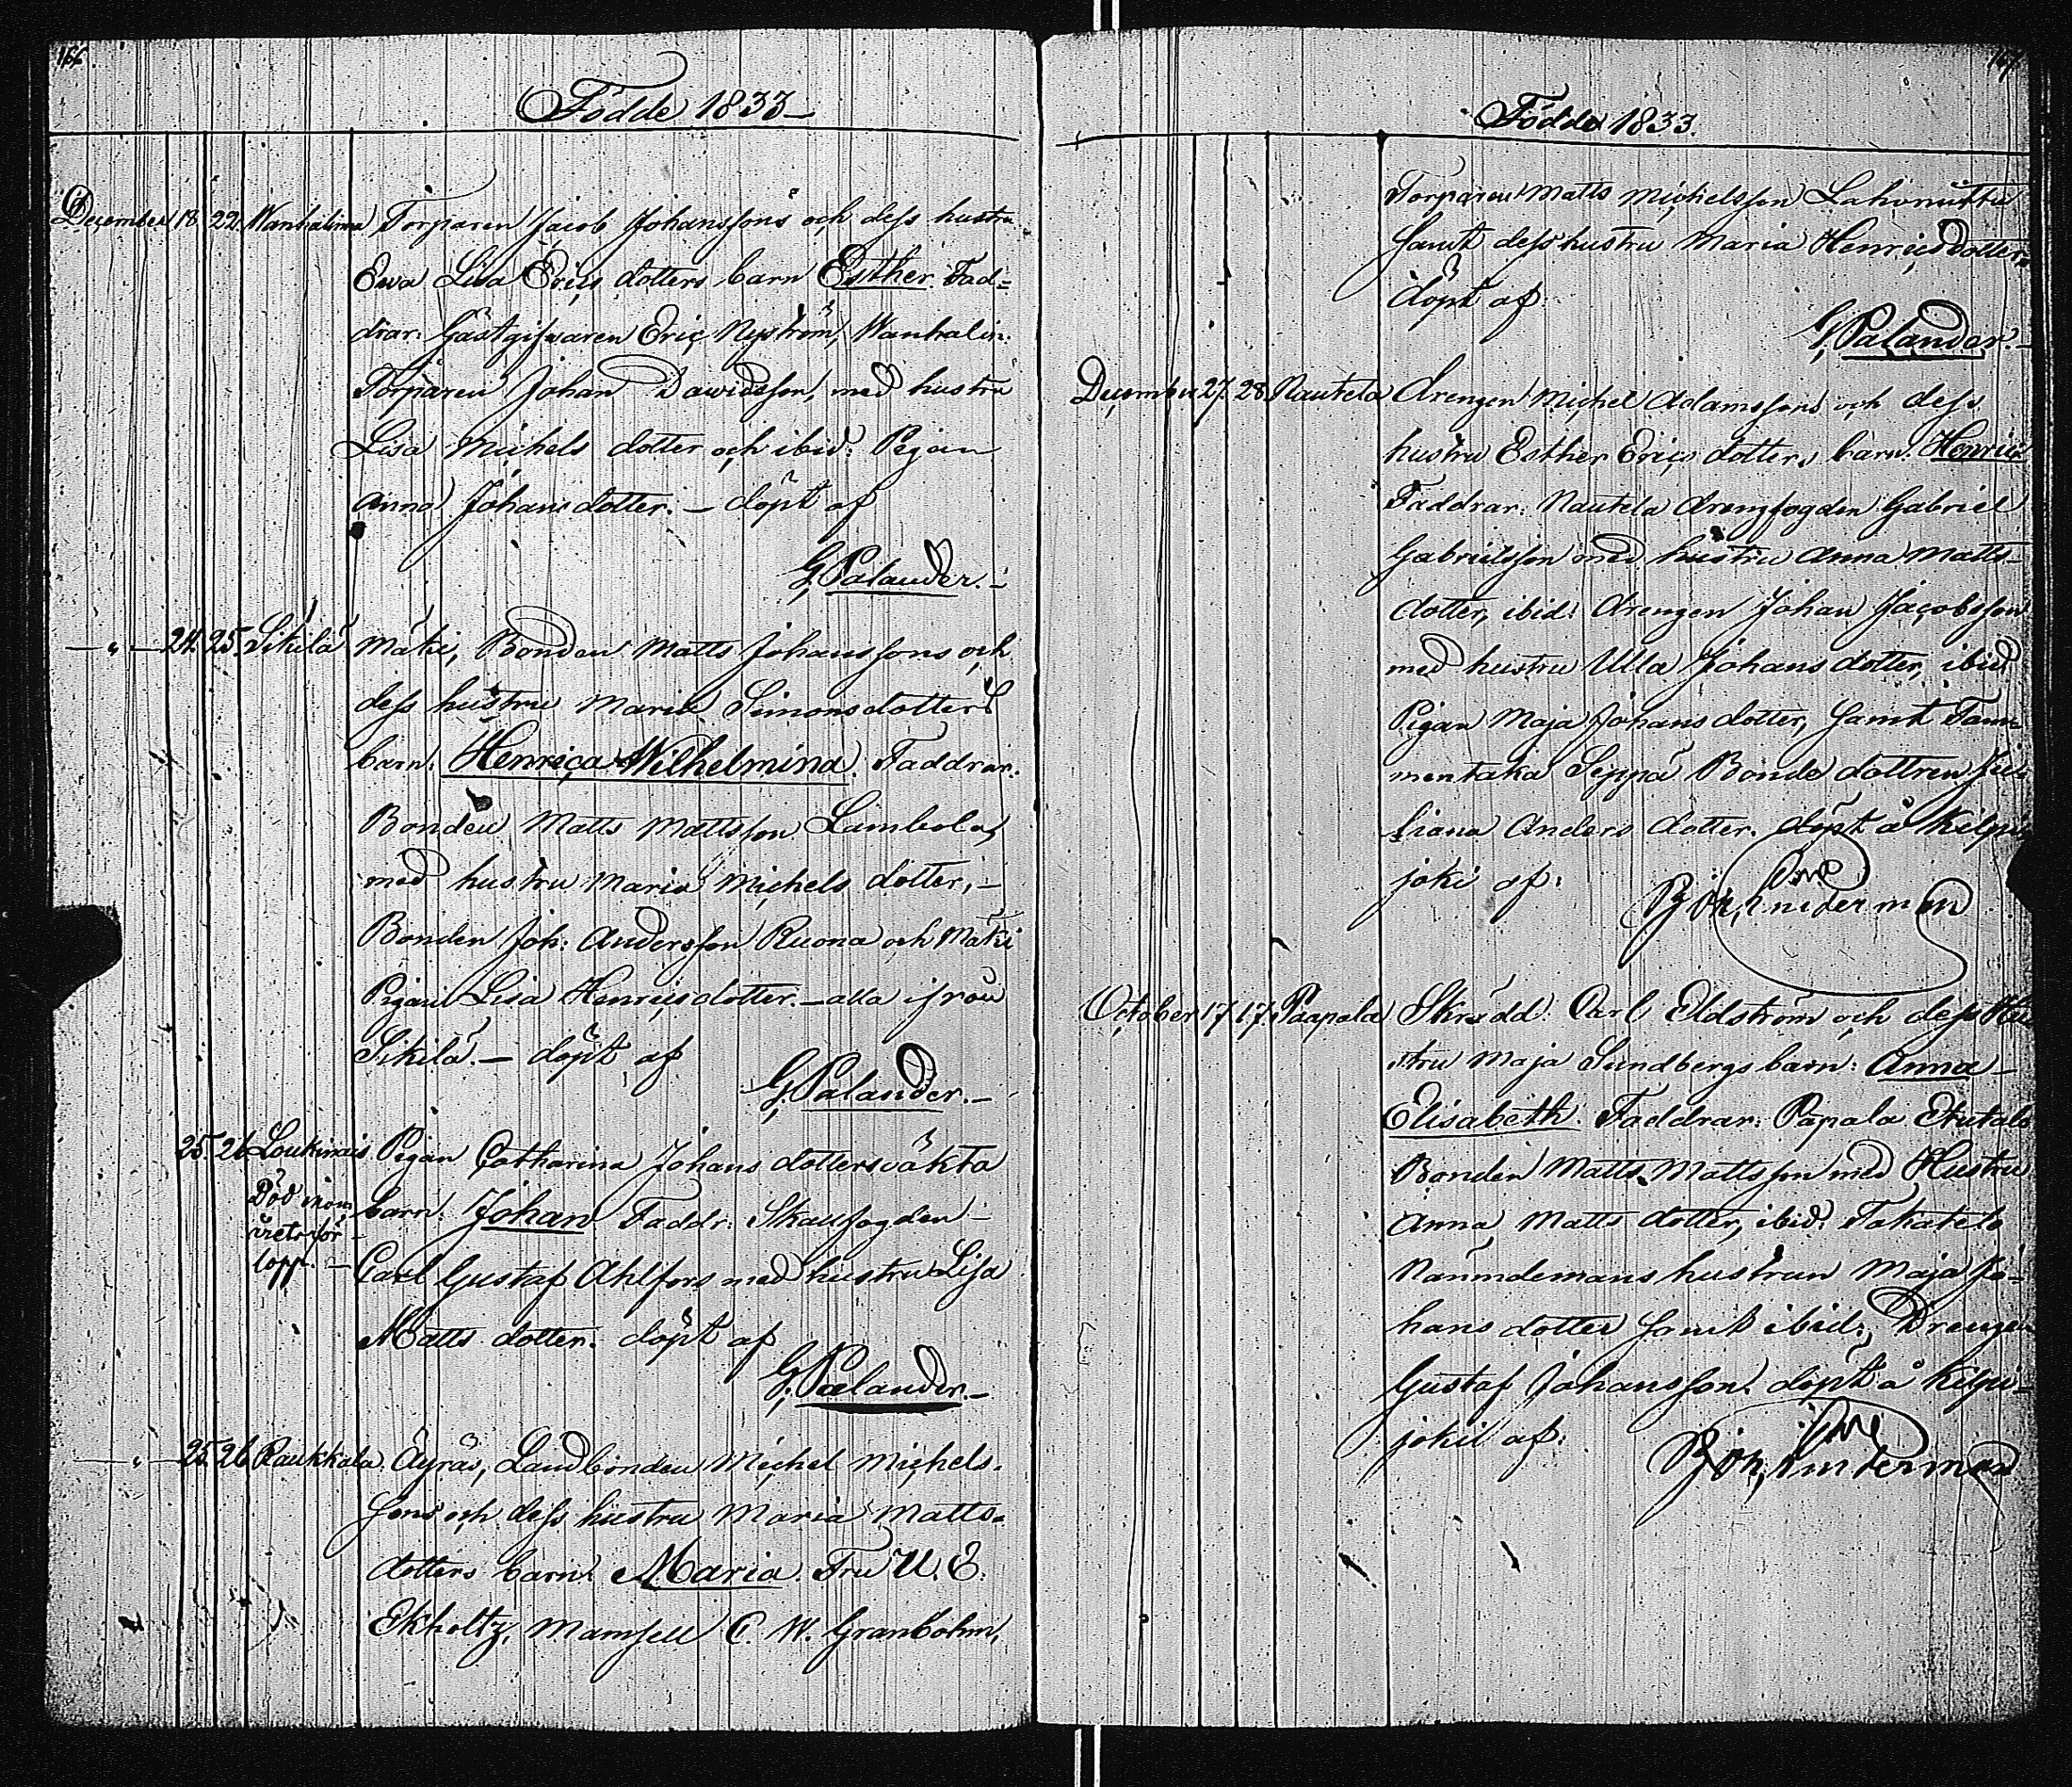 166.
Födde 1833
December 18. 22. Wanhalinna Torparen Jacob Johanssons och dess hustru
Ewa Lisa Erics dotters barn Esther. Fad=
drar: Gästgifwaren Eric Nyström, Wanhalin:
Torparen Johan Dawidsson, med hustru
Lisa Michels dotter och ibid: Pigan
Anna Johans dotter. – döpt af
G. Palander. –
— " — 24. 25. Sikilä Mäki, Bonden Matts Johanssons och
dess hustru Maria Simonsdotters
barn: Henrica Wilhelmina. Faddrar:
Bonden Matts Mattsson Lambola,
med hustru Maria Michels dotter, –
Bonden Joh: Andersson Ruona och Mäki
Pigan Lisa Henricsdotter. – alla ifrån
Sikilä. – döpt af
G. Palander. –
25. 26 Loukinais Pigan Catharina Johans dotters oäkta
Död inom
barn: Johan Faddr: Skallfogden –
årets för-
lopp. –
Carl Gustaf Ahlfors med hustru Lisa
Matts dotter. döpt af
G. Palander. –
— " — 25. 26. Raukkala. Äyräs, Landbonden Michel Michels-
sons och dess hustru Maria Matts-
dotters barn: Maria. Fru U. E.
Ekholtz, Mamsell C. W. Granbohm,
167.
Födde 1833.
Torparen Matts Michelsson
samt dess hustru Maria Henricsdotter.
döpt af:
G. Palander. –
December 27. 28. Nautela Drengen Michel Adamssons och dess
hustru Esther Erics dotters barn. Henric
Faddrar: Nautela Drengfogden Gabriel
Gabrielsson med hustru Anna Matts-
dotter, ibid: Drengen Johan Jacobsson
med hustru Ulla Johans dotter, ibid
Pigan Maja Johans dotter, samt Tam-
mentaka Seppä Bonde dottren Ju-
liana Anders dotter. döpt å Kilpis
joki af:
October 17 17. Paapala Skrädd: Carl Eldström och dess Hu
stru Maja Sundbergs barn: Anna –
Elisabeth. Faddrar: Papala Etutalo
Bonden Matts Mattsson med Hustru
Anna Matts dotter, ibid: Takatalo
Nämndemans hustrun Maja Jo-
hans dotter samt ibid: Drengen
Gustaf Johansson. döpt å Kilpis-
joki af: